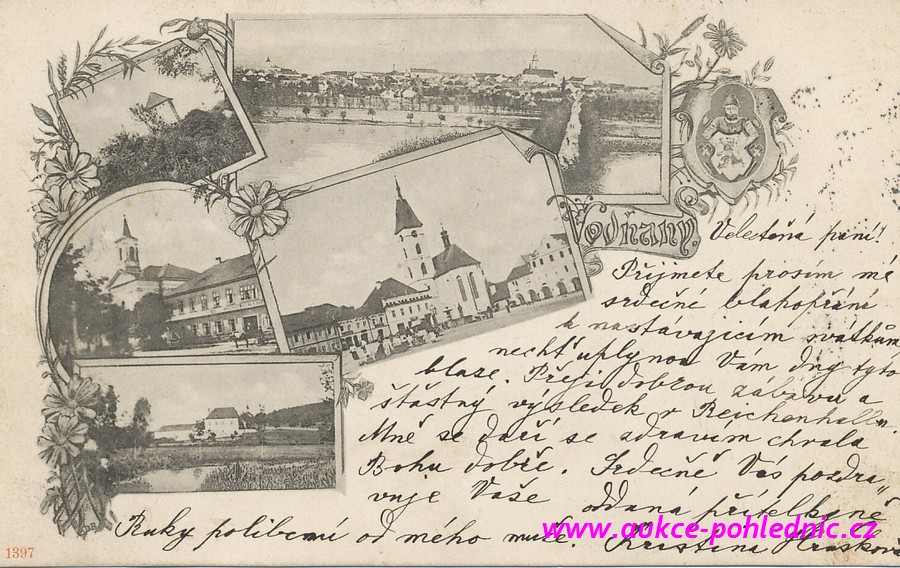 Vodňany.
Velectěná paní!
Přijmete prosím mé
srdečné blahopřání
k nastavajícím svátkům
nechť uplynou Vám dny tyto
blaze. Přeji dobrou zábavu a
šťastný výsledek v Reichenhallu.
Mně se daří se zdravím chvala
Bohu dobře. Srdečně Vás pozdra„
vuje Vaše oddaná přítelkyně
Ruky políbení od mého muže. Kristina
www.aokce-pohlednic.cz
1397